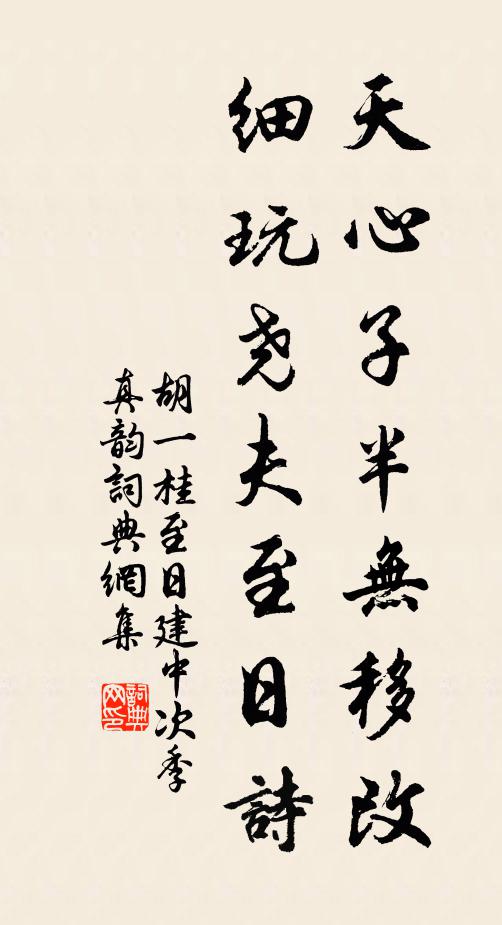 天心子半無移改
細玩尧夫至日詩
胡一桂至日建中次季
真韵詞典網集
詞典网印